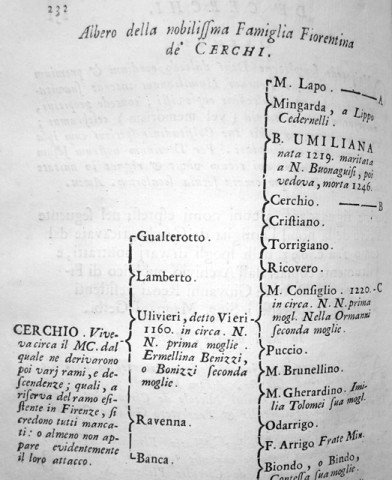 232
Albero della nobilissima Famiglia Fiorentina
de' CERCHI.
M. Lapo.
A
Mingarda, a Lippo
Cedernelli.
B. UMILIANA
nata 1219. maritata
a N. Buonaguisi, poi
vedova, morta 1246.
Cerchio.
B
Cristiano.
Torrigiano.
Ricovero.
M. Consiglio 1220.
C
in circa. N. N. prima
mogl. Nella Ormanni
seconda moglie.
Puccio.
M. Brunellino.
M. Gherardino. Imi-
lia Tolomei sua mogl.
Odarrigo.
F. Arrigo Frate Min.
Biondo, o Bindo,
Gualterotto.
Lamberto.
Ulivieri, detto Vieri
1160. in circa. N.
N. prima moglie.
Ermellina Benizzi,
o Bonizzi seconda
moglie.
Ravenna.
Banca.
CERCHIO. Vive-
va circa il MC. dal
quale ne derivarono
poi varj rami, e de-
scendenze; quali, a
riserva del ramo esi-
stente in Firenze, si
credono tutti manca-
ti: o almeno non ap-
pare evidentemente
il loro attacco.